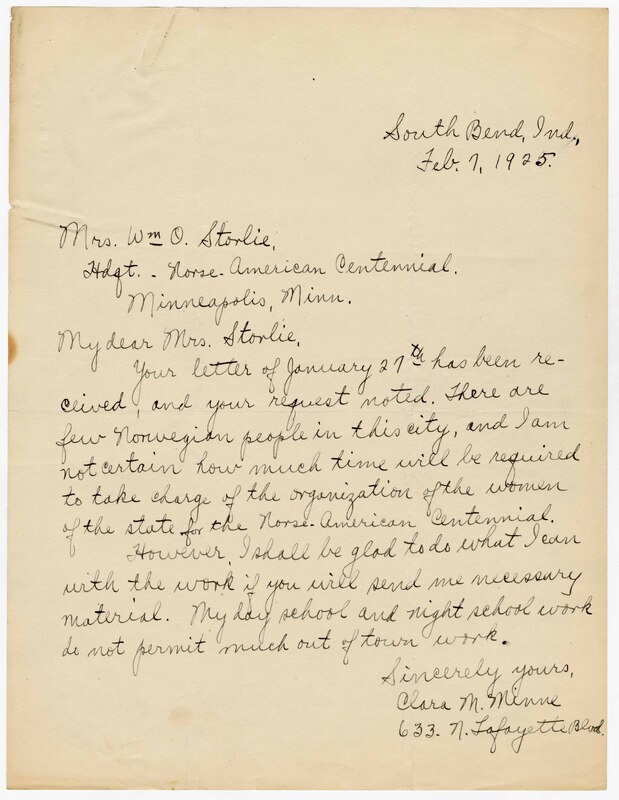 South Bend, Ind.,
Feb. 7, 1925.
Mrs. Wm O. Storlie,
Hdqt. - Norse-American Centennial.
Minneapolis, Minn.
My dear Mrs. Storlie,
Your letter of January 27th has been re-
ceived, and your request noted. There are
few Norwegian people in this city, and I am
not certain how much time will be required
to take charge of the organization of the women
of the state for the Norse-American Centennial.
However, I shall be glad to do what I can
with the work if you will send me necessary
material. My day school and night school work
do not permit much out of town work.
Sincerely yours,
Clara M. Minne
633- N. Lafayette Blvd.